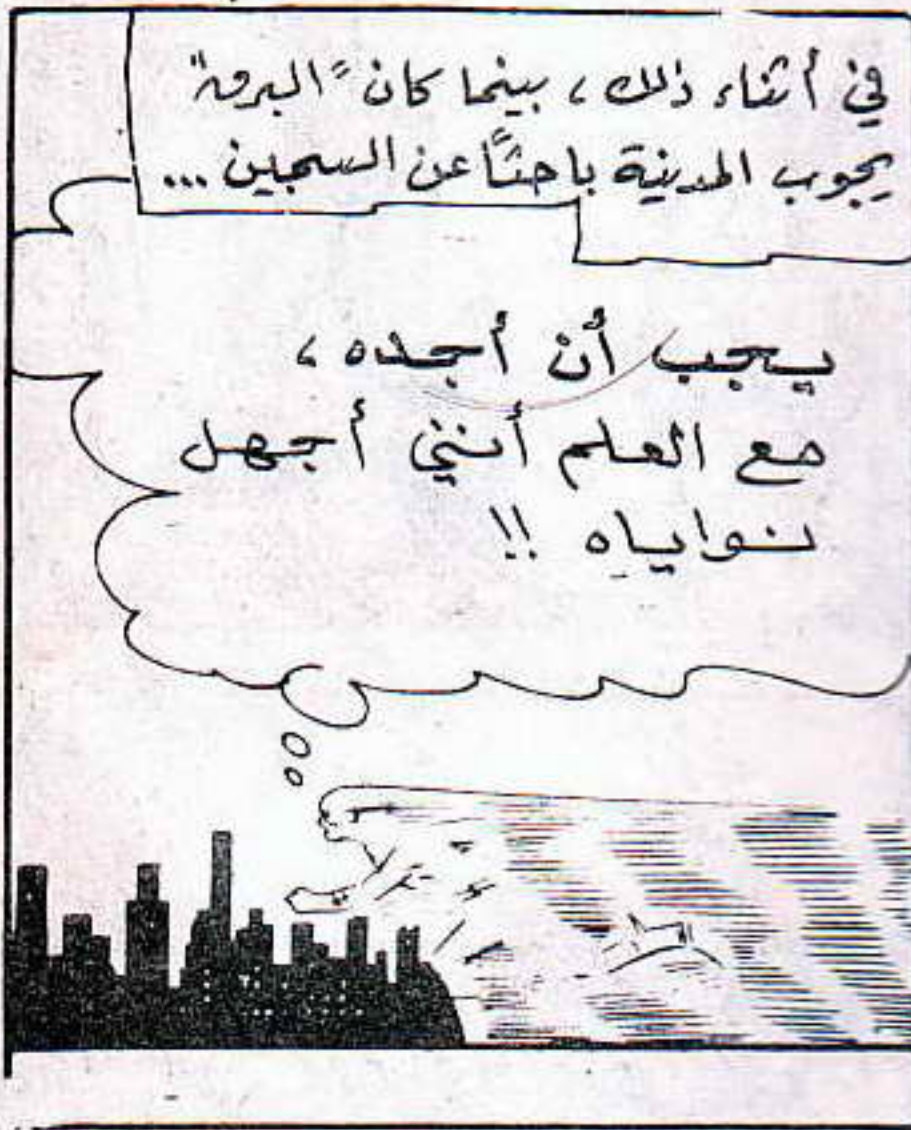 في أثناء ذلك، بينما كان "البرق"
يجوب المدينة باحثاً عن السجين...
يجب أن أجده،
مع العلم أنني أجهل
نواياه !!